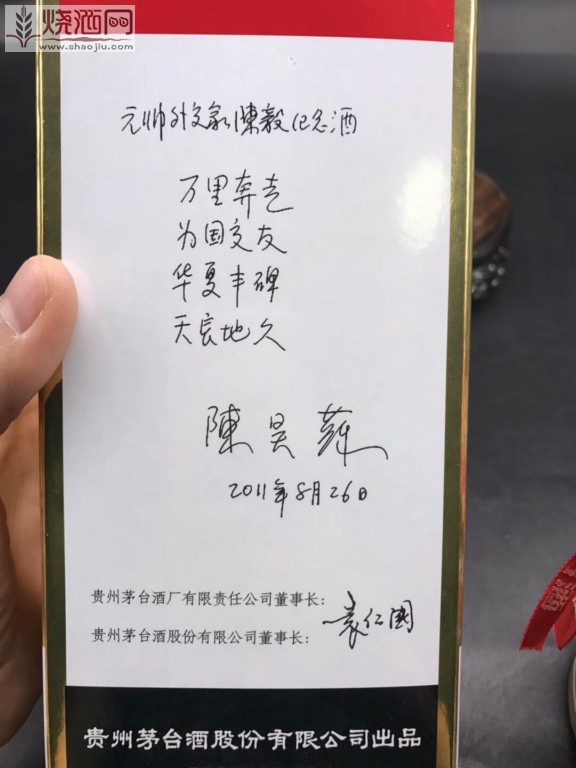 烧酒网
www.shaojiu.com
元帅外交家陳毅纪念酒
万里奔走
为国交友
华夏丰碑
天長地久
陳昊蘇
2011年8月26日
贵州茅台酒厂有限责任公司董事长：
袁仁国
贵州茅台酒股份有限公司董事长：
贵州茅台酒股份有限公司出品